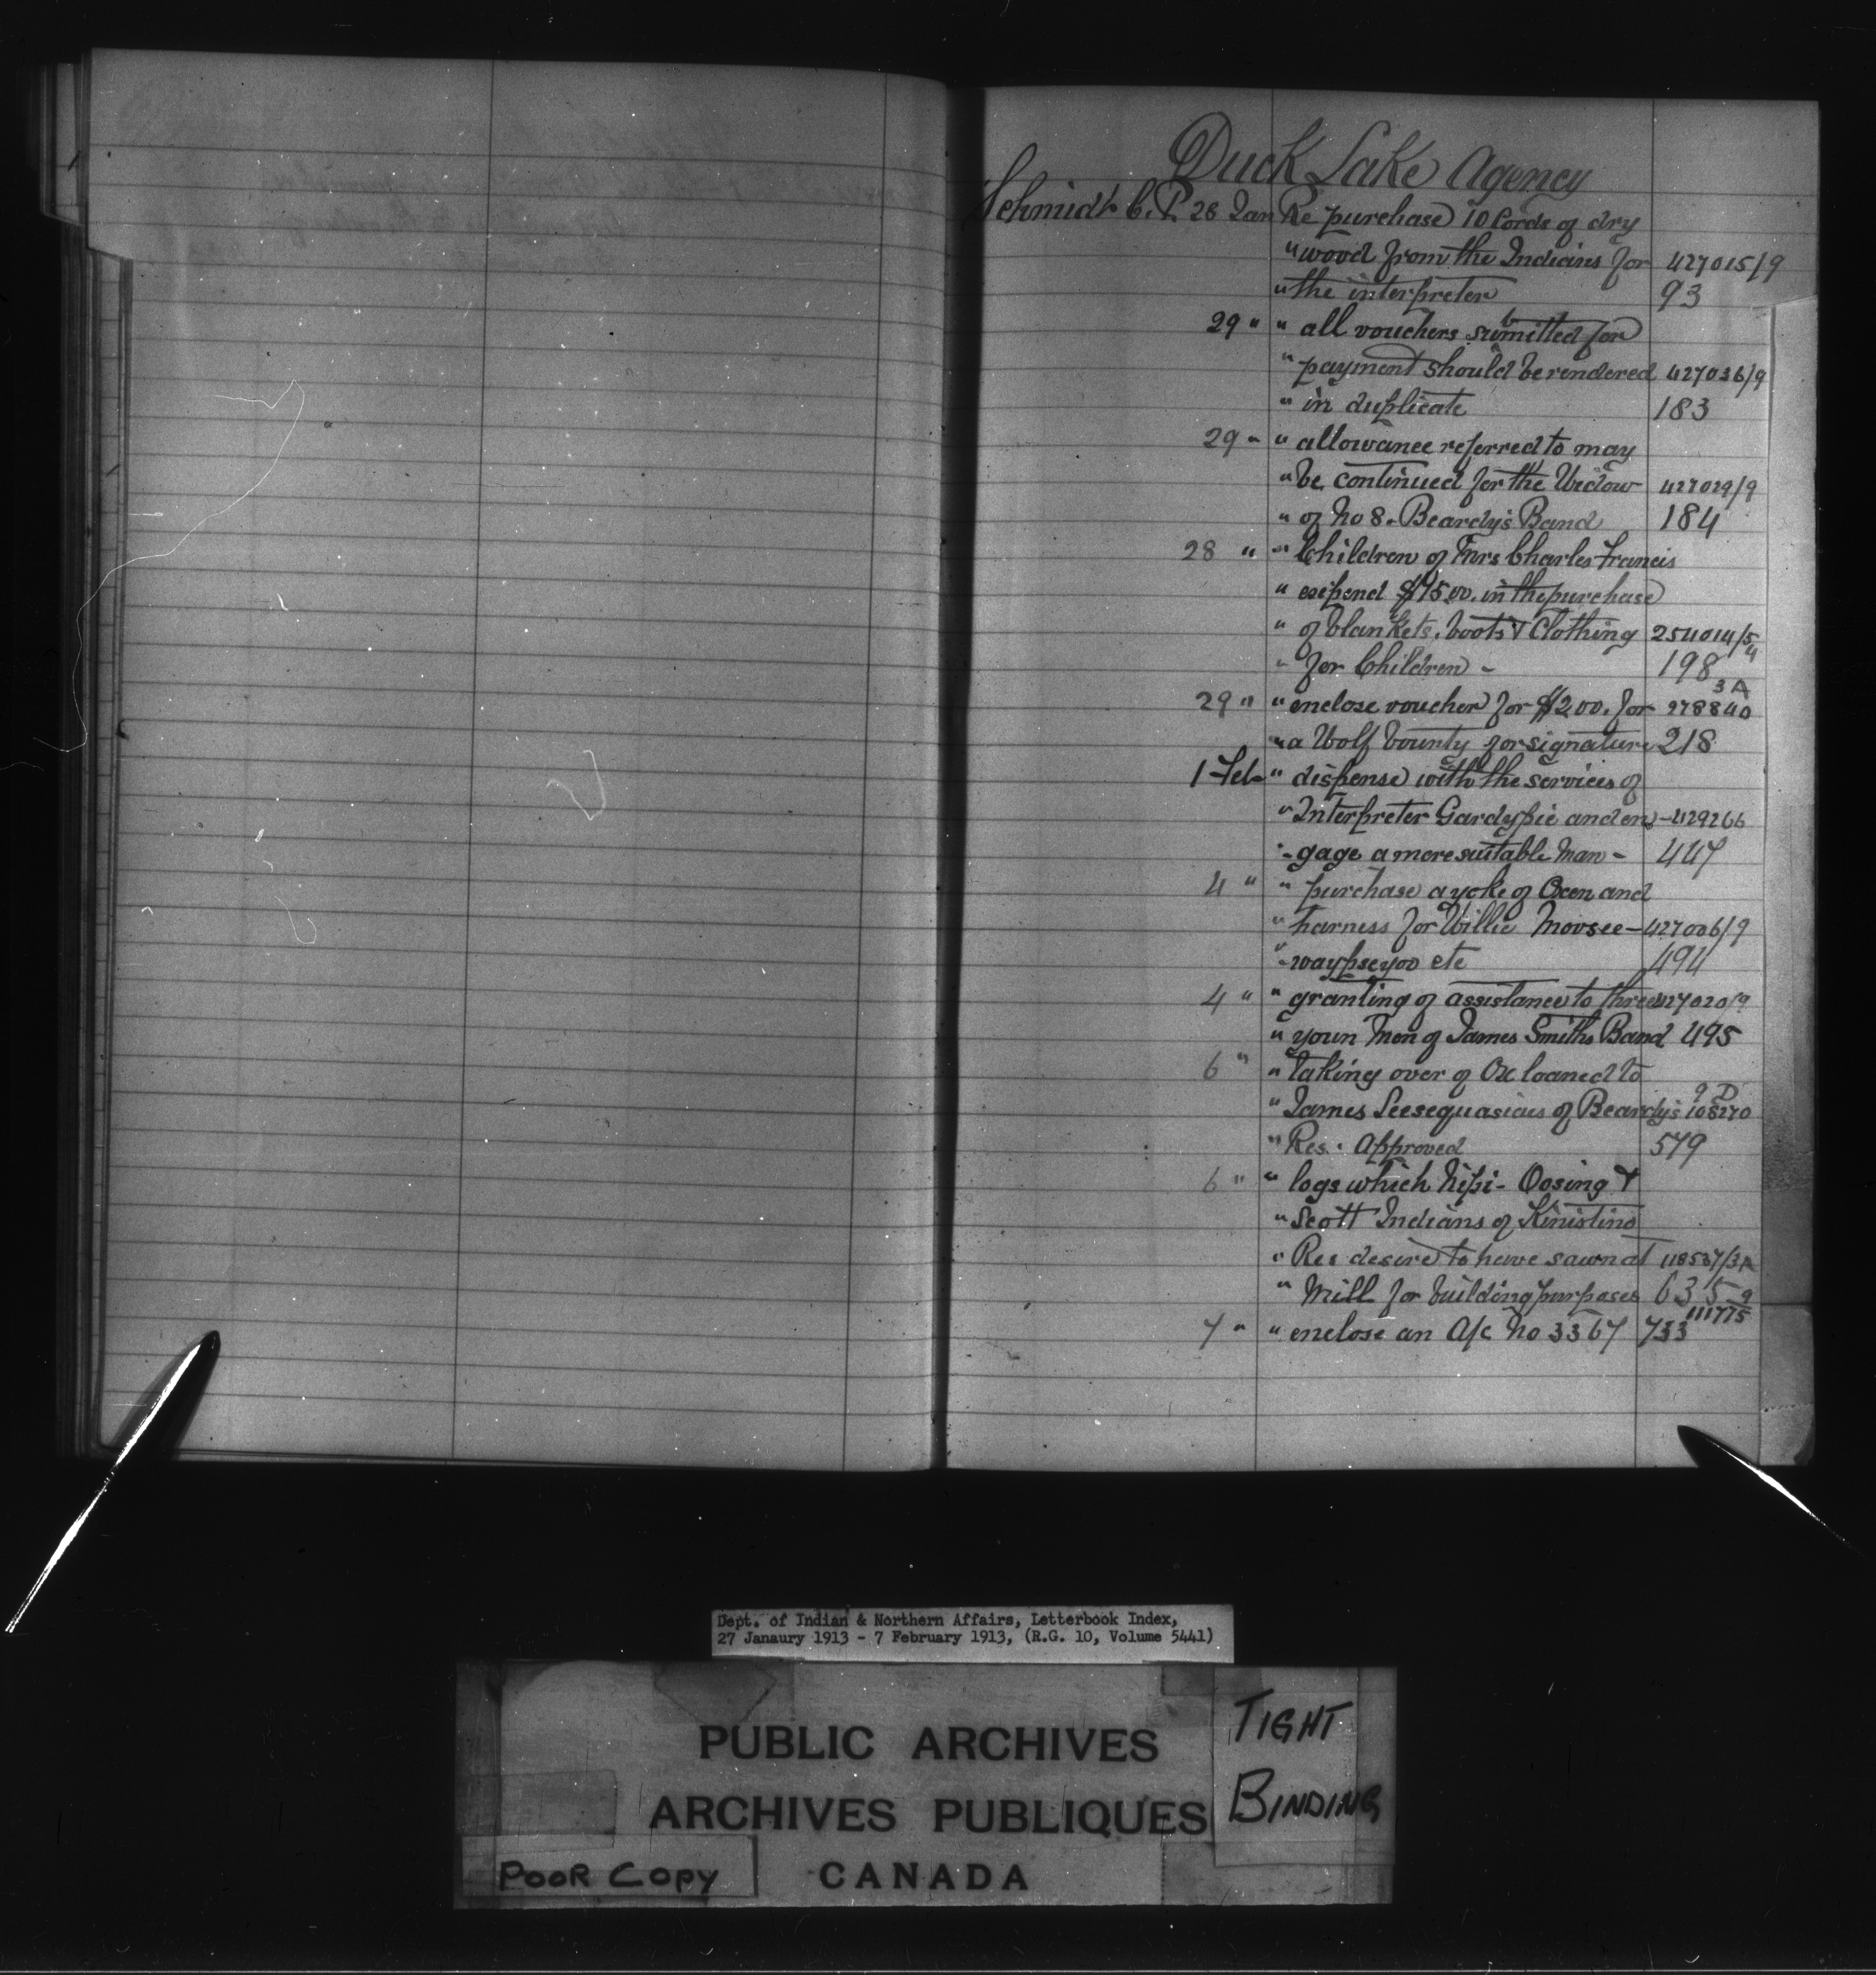 Duck Lake Agency
Schmidt C. P. 28 Jan Re purchase 10 Cords of dry
" wood from the Indians for 427015/9
" the interpreter 93
29 " " all vouchers submitted for
" payment should be rendered 427036/9
" in duplicate 183
29 " " allowance referred to may
" be continued for the Widow 427029/9
" of No 8. Beardy's Band 184
28 " " Children of Mrs Charles Francis
" expend $15.00. in the purchase
" of blankets, boots & Clothing 254014/5
" for Children - 198 4
3 A
29 " " enclose voucher for $2.00. for 278840
" a Wolf bounty for signature 218
1 Feb " dispense with the services of
" Interpreter Gardypie and en - 429266
" - gage a more suitable man - 447
4 " " purchase a yoke of Oxen and
" harness for Willie Moosee - 427006/9
" - waypseyoo etc 494
4 " " granting of assistance to three 427020/9
" youn Men of James Smiths Band 495
6 " " taking over of Ox loaned to
9 D
" James Seesequasicus of Beardy's 108270
" Res. Approved 579
6 " " logs which Nipi - Oosing &
" Scott Indians of Kinistino
" Res desire to have sawn at 118537/3A
" Mill for building purposes 635 9
111775
7 " " enclose an A/c No 3367 733
Dept. of Indian & Northern Affairs, Letterbook Index,
27 Janaury 1913 - 7 February 1913, (R.G. 10, Volume 5441)
PUBLIC ARCHIVES
ARCHIVES PUBLIQUES
CANADA
TIGHT
BINDING
POOR COPY